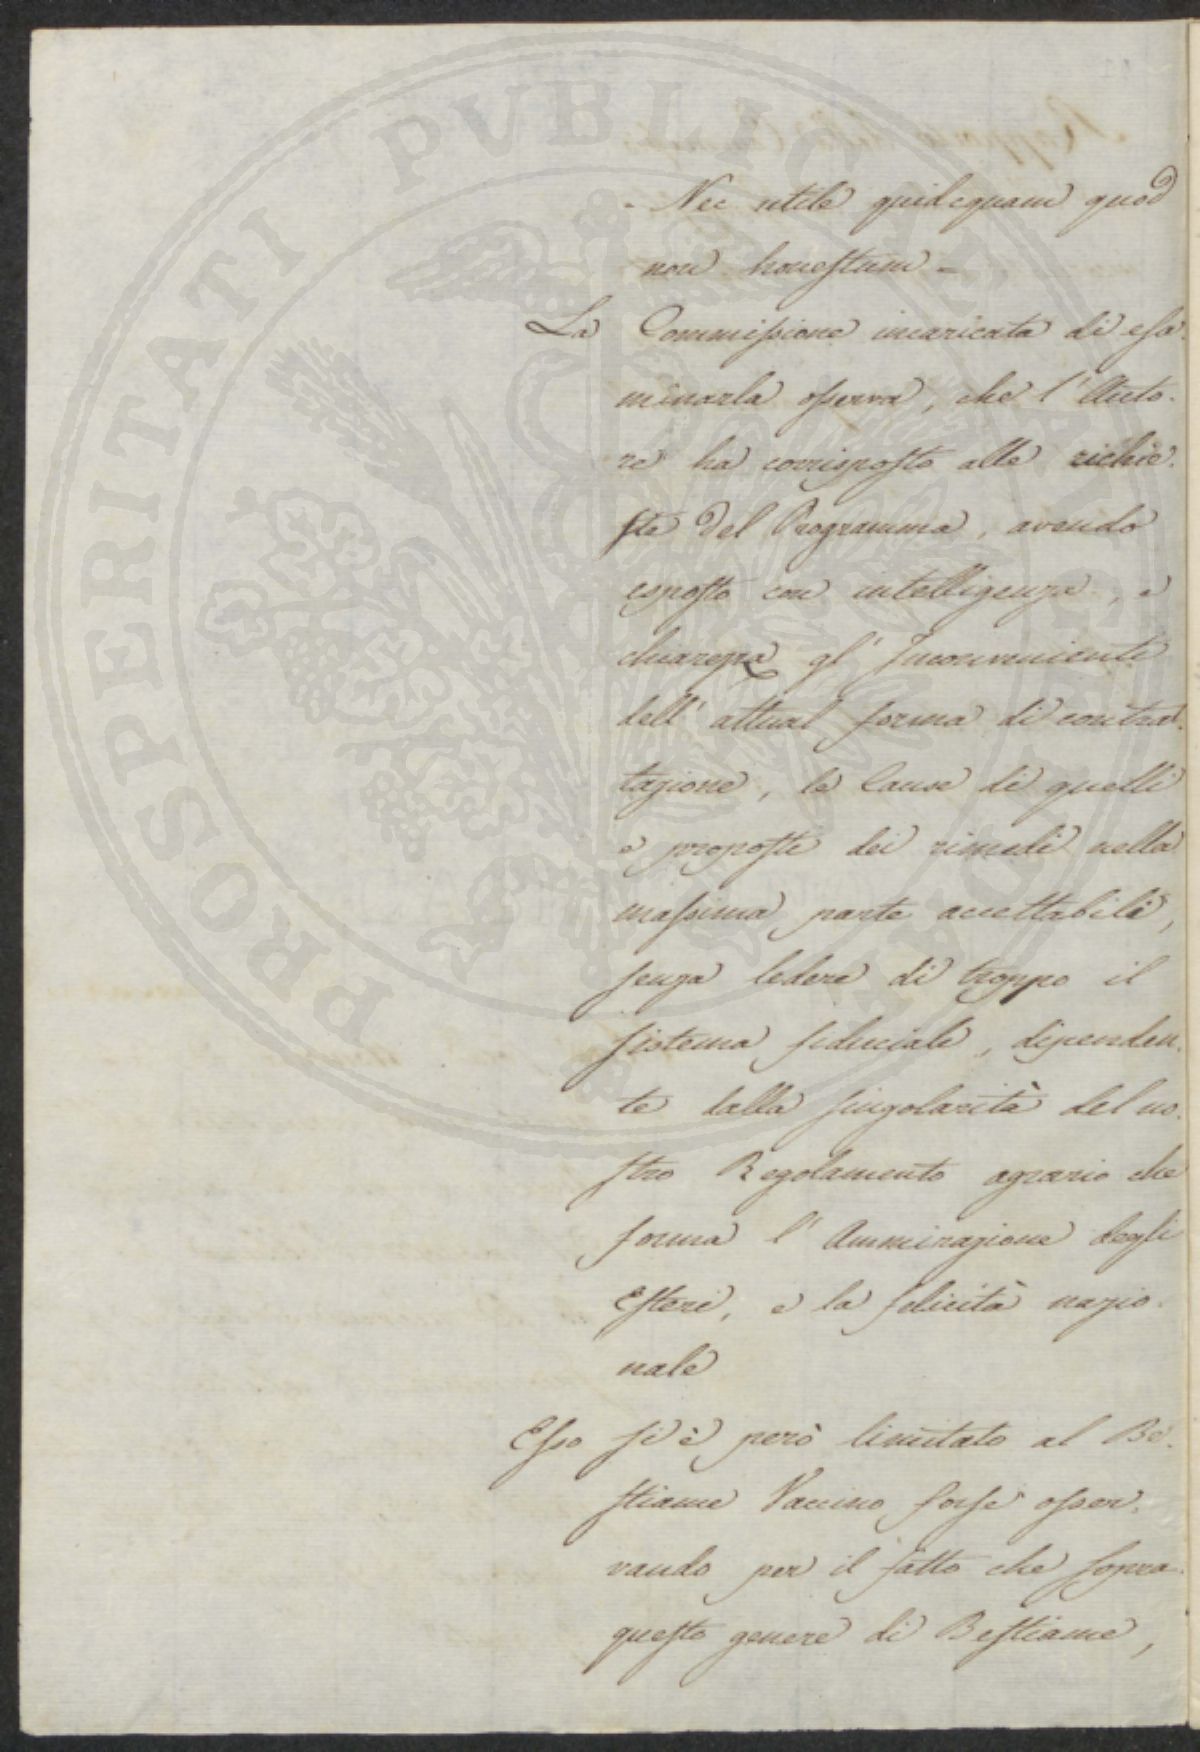 PROSPERITATI PUBLICAE AUGENDAE
- Nec utile quidequam quod
non honestum -
La Commissione incaricata di esa-
minarla osserva, che l'Auto-
re ha corrisposto alle richie-
ste del Programma, avendo
esposto con intelligenza, e
chiarezza gl'Inconvenienti
dell'attual forma di contrat-
tazione, le Cause di quelli
e proposte dei rimedi nella
massima parte accettabili,
senza ledere di troppo il
sistema fiduciale, dipenden-
te dalla singolarità del no-
stro Regolamento agrario che
forma l'Ammirazione degli
Esteri, e la felicità nazio-
nale
Esso si è però limitato al Be-
stiame Vaccino forse osser-
vando per il fatto che sopra
questo genere di Bestiame,